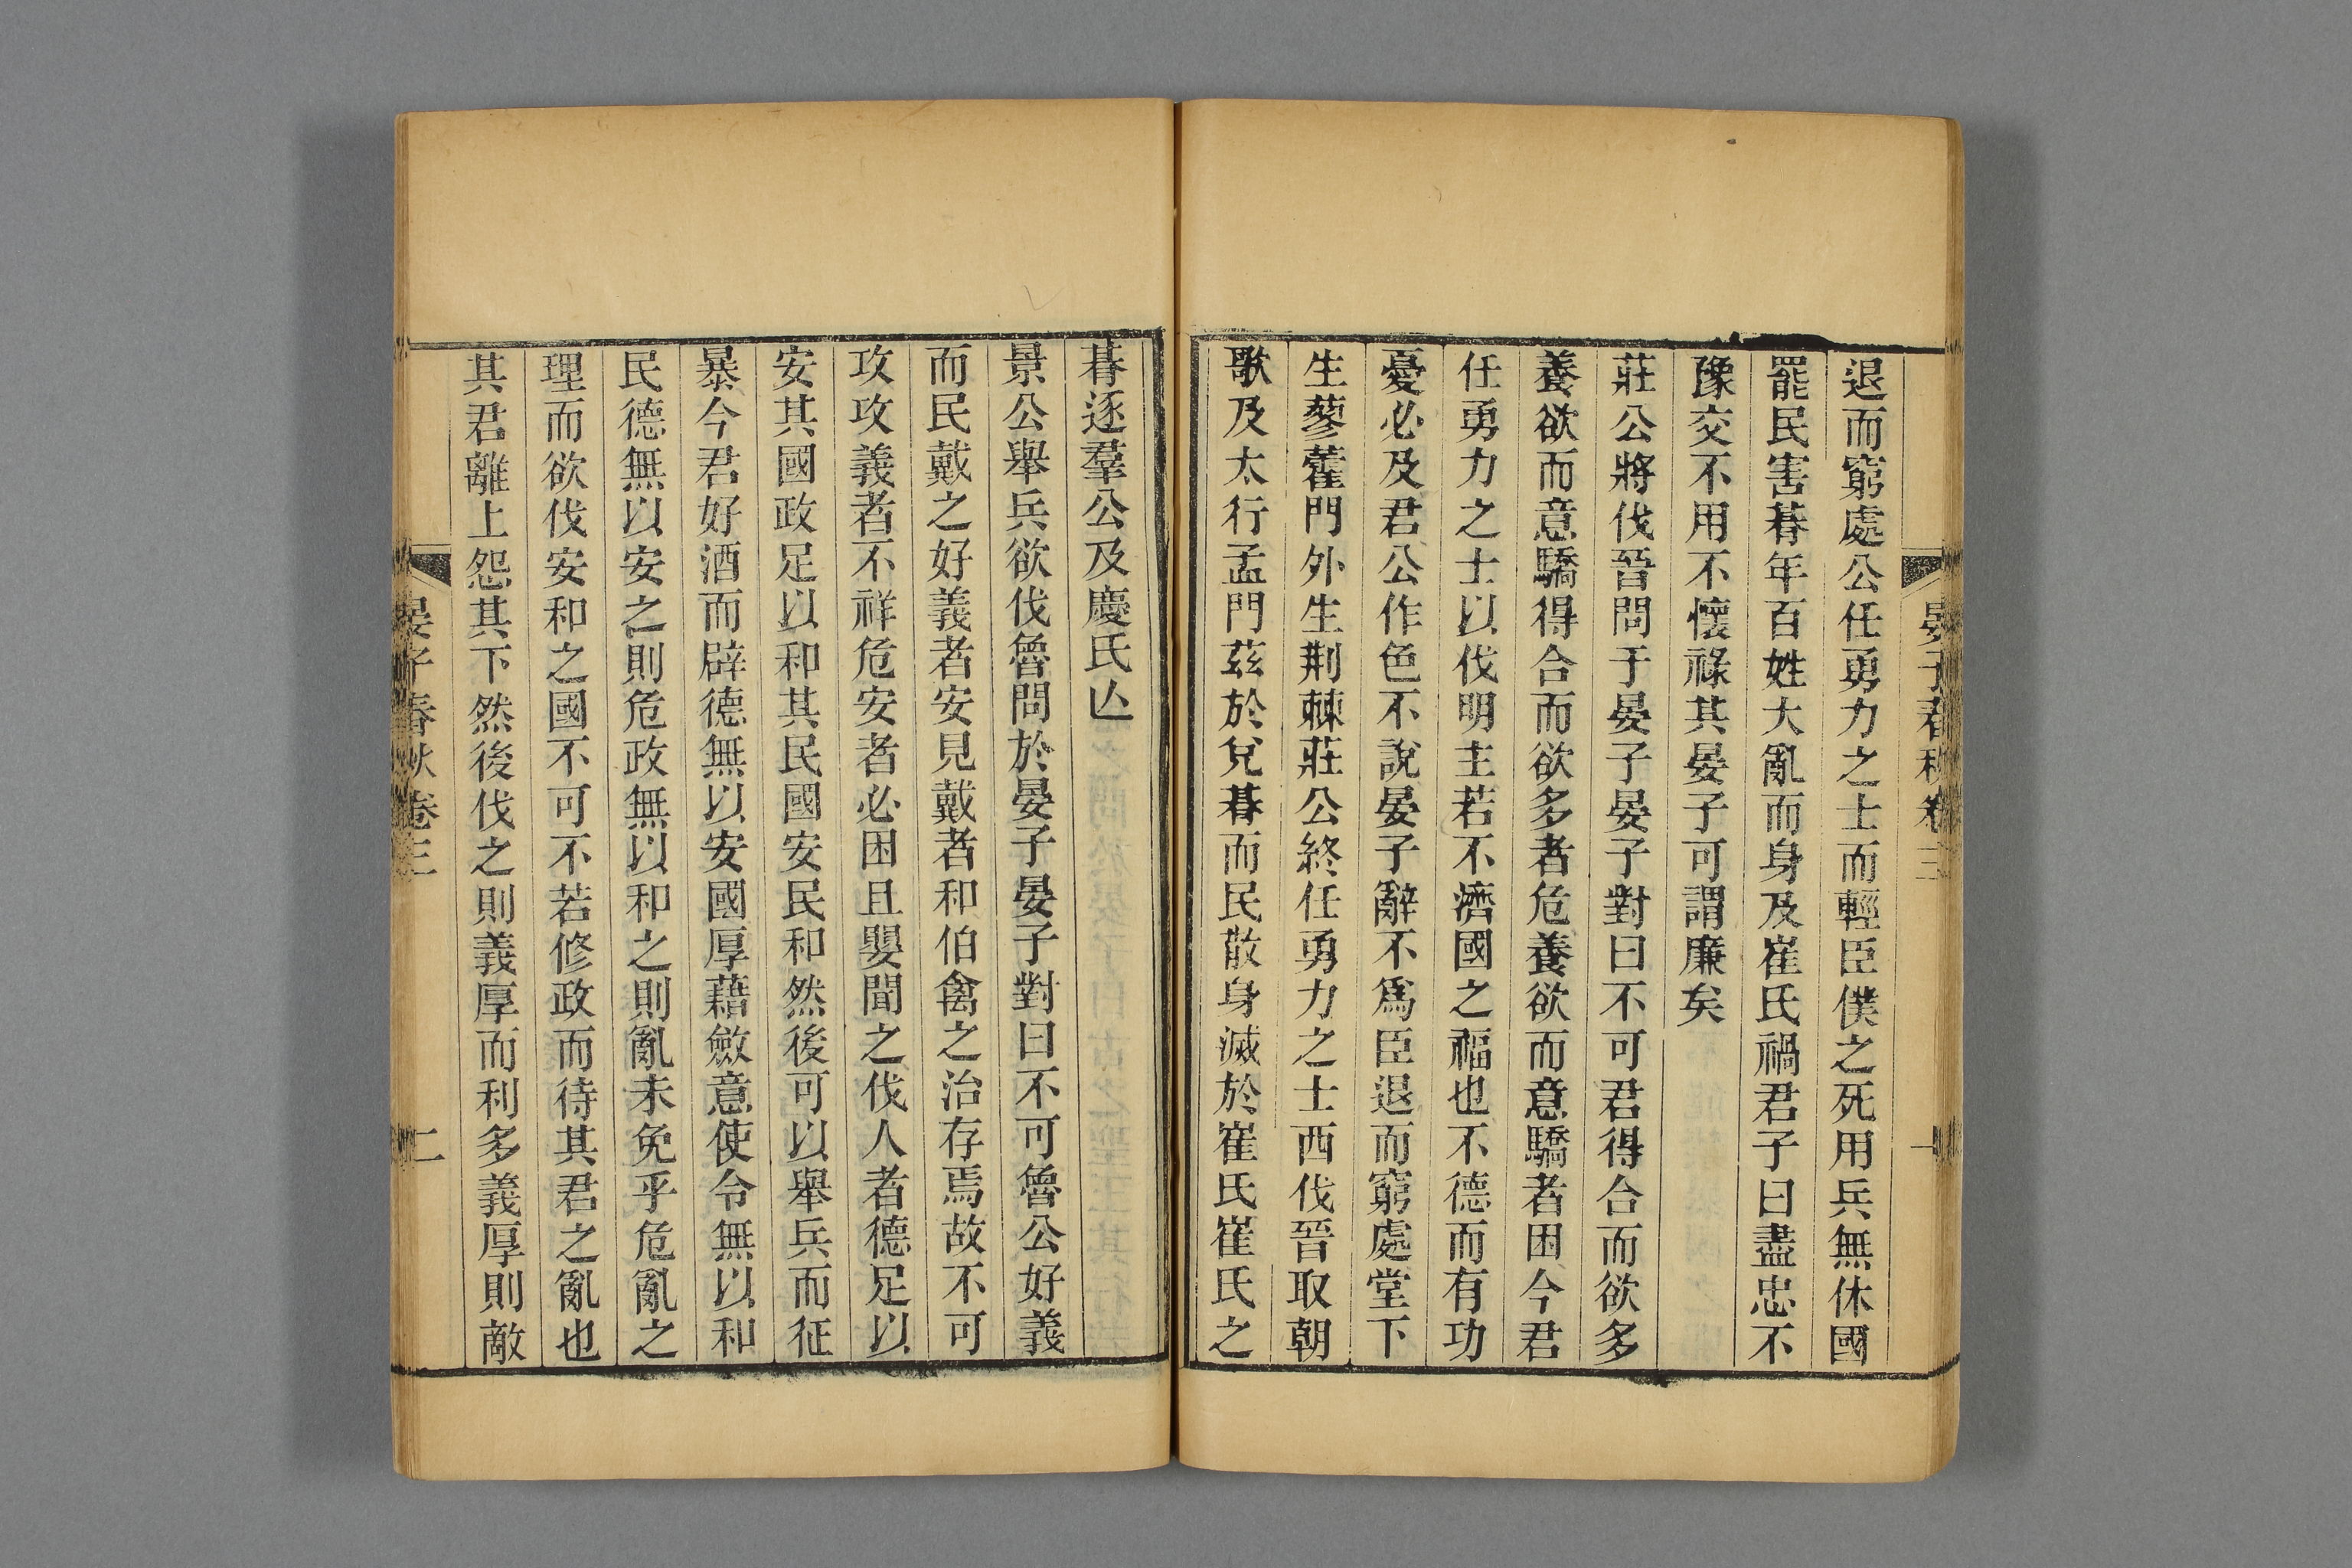 晏子春秋卷三 一
退而窮處公任勇力之士而輕臣僕之死用兵無休國
罷民害朞年百姓大亂而身及崔氏禍君子曰盡忠不
豫交不用不懷祿其晏子可謂廉矣
莊公將伐晉問于晏子晏子對曰不可君得合而欲多
養欲而意驕得合而欲多者危養欲而意驕者困今君
任勇力之士以伐明主若不濟國之福也不德而有功
憂必及君公作色不說晏子辭不爲臣退而窮處堂下
生蓼藿門外生荆棘莊公終任勇力之士西伐晉取朝
歌及太行孟門茲於兌朞而民散身滅於崔氏崔氏之
朞逐羣公及慶氏亾
景公舉兵欲伐魯問於晏子晏子對曰不可魯公好義
而民戴之好義者安見戴者和伯禽之治存焉故不可
攻攻義者不祥危安者必困且嬰聞之伐人者德足以
安其國政足以和其民國安民和然後可以舉兵而征
暴今君好酒而辟德無以安國厚藉斂意使令無以和
民德無以安之則危政無以和之則亂未免乎危亂之
理而欲伐安和之國不可不若修政而待其君之亂也
其君離上怨其下然後伐之則義厚而利多義厚則敵
晏子春秋卷三 二